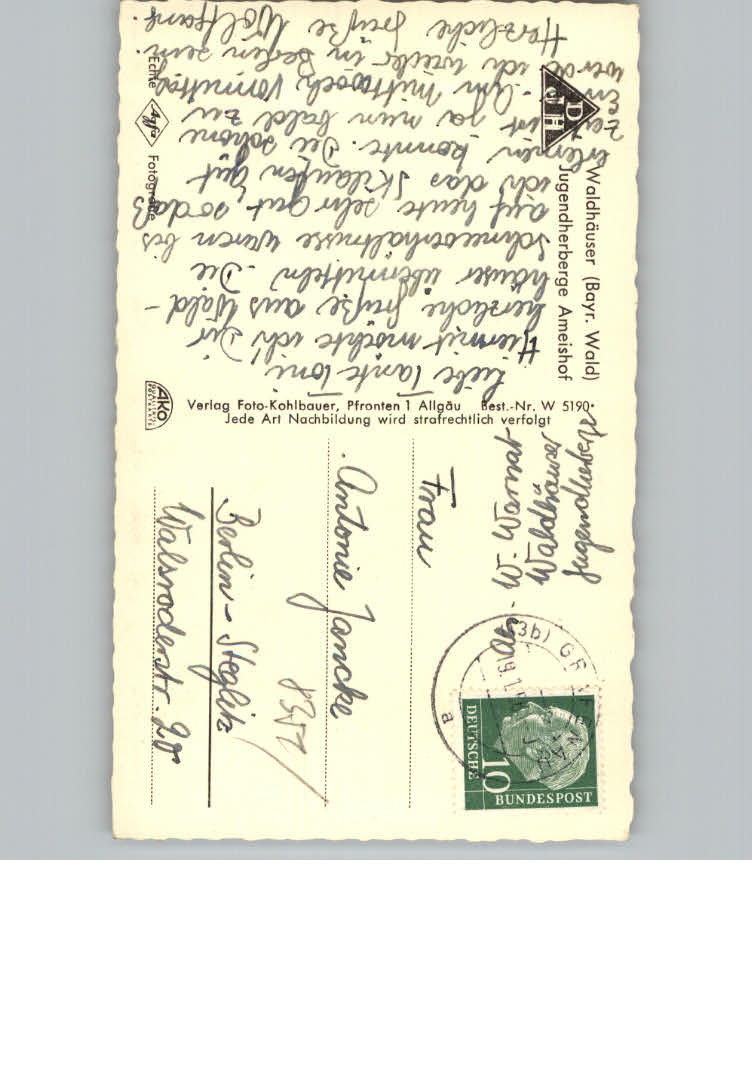 Waldhäuser (Bayr. Wald)
Jugendherberge Ameishof
D
J H
Liebe Tante Toni
Hiermit möchte ich Dir
herzliche Grüße aus Wald-
häuser übermitteln. Die
Schneeverhältnisse waren bis
auf heute sehr gut sodaß
ich das Skilaufen gut
erlernen konnte. Die schöne
Zeit ist ja nun bald zu
Am Mittwoch Vormittag
werde ich wieder in Berlin sein.
Herzliche Grüße
Echte Agfa Fotografie
Verlag Foto-Kohlbauer, Pfronten 1 Allgäu Best.-Nr. W 5190
Jede Art Nachbildung wird strafrechtlich verfolgt
AKO
Waldhäuser
DEUTSCHE
10
BUNDESPOST
(13b) GRAFENAU
a
Frau
Antonie Jancke
Berlin-Steglitz
Walsroderstr.